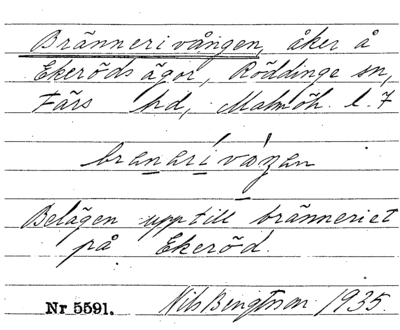 Bränneri vången, åker å
Ekeröds ägor, Röddinge sn,
Färs hd, Malmöh. l. 7
branarívázan
Belägen upp till bränneriet
på Ekeröd.
Nr 5591. Nils Bengtsson 1935.